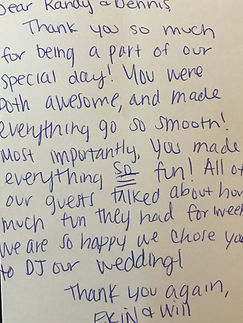 Dear Randy & Dennis
Thank you so much
for being a part of our
special day! You were
both awesome, and made
everything go so smooth!
Most importantly, you made
everything so fun! All of
our guests talked about how
much fun they had for weeks
We are so happy we chose you
to DJ our wedding!
Thank you again,
& Will